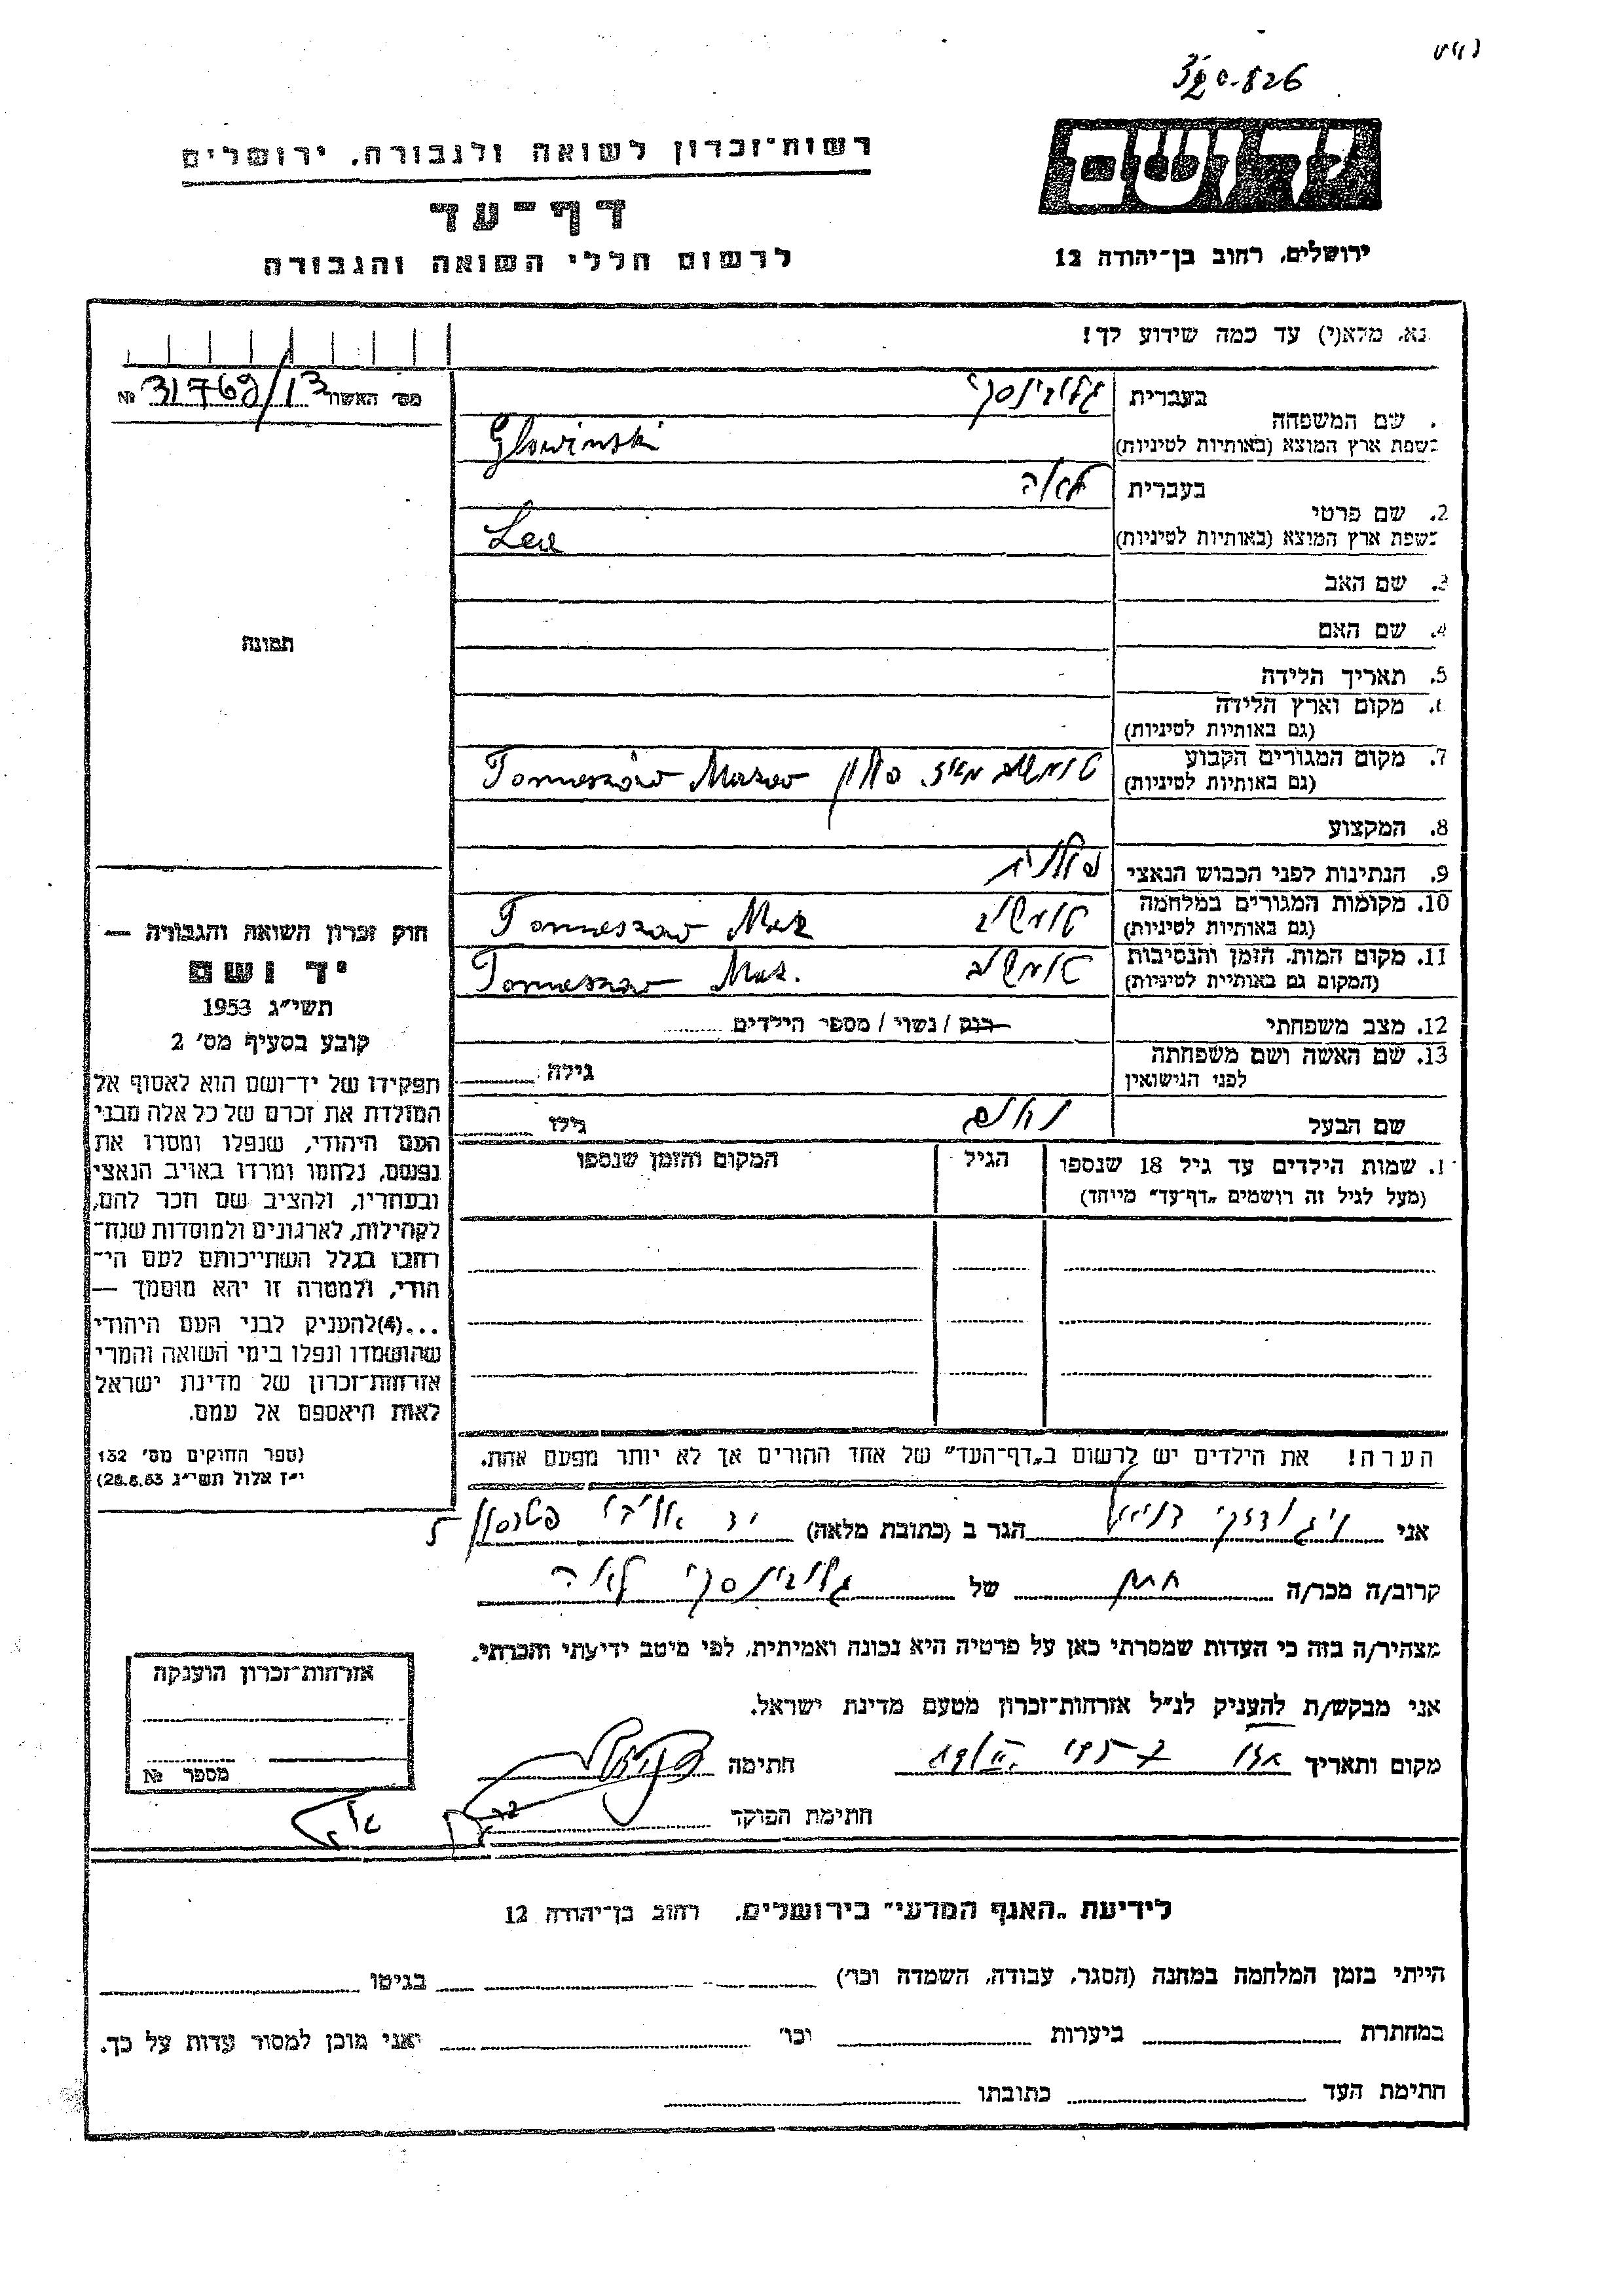 326
רשות־זכרון לשואה ולגבורה, ירושלים
דף־עד
לרשום חללי השואה והגבורה
יד ושם
ירושלים, רחוב בן־יהודה 12
נא, מלא(י) עד כמה שידוע לך!
מס׳ האשור № 31769/13
שם המשפחה
בעברית גלובינסקי
בשפת ארץ המוצא (באותיות לטיניות) Glowinski
2. שם פרטי
בעברית לאה
בשפת ארץ המוצא (באותיות לטיניות) Lea
3. שם האב
4. שם האם
תמונה
5. תאריך הלידה
מקום וארץ הלידה
(גם באותיות לטיניות)
7. מקום המגורים הקבוע
(גם באותיות לטיניות) טומשוב מאז. פולין Tomeszów Mazow
8. המקצוע
9. הנתינות לפני הכבוש הנאצי פולנית
10. מקומות המגורים במלחמה
(גם באותיות לטיניות) טומשוב Tomeszow Maz
11. מקום המות, הזמן והנסיבות
(המקום גם באותיות לטיניות) טומשוב Tomeszow Maz.
12. מצב משפחתי רווק / נשוי / מספר הילדים
13. שם האשה ושם משפחתה
לפני הנישואין גילה
שם הבעל נחום גילו
1. שמות הילדים עד גיל 18 שנספו
(מעל לגיל זה רושמים „דף־עד״ מיוחד)
הגיל
המקום והזמן שנספו
חוק זכרון השואה והגבורה —
יד ושם
תשי״ג 1953
קובע בסעיף מס׳ 2
תפקידו של יד־ושם הוא לאסוף אל
המולדת את זכרם של כל אלה מבני
העם היהודי, שנפלו ומסרו את
נפשם, נלחמו ומרדו באויב הנאצי
ובעוזריו, ולהציב שם וזכר להם,
לקהילות, לארגונים ולמוסדות שנח־
רבו בגלל השתייכותם לעם הי־
הודי, ולמטרה זו יהא מוסמך —
...(4)להעניק לבני העם היהודי
שהושמדו ונפלו בימי השואה והמרי
אזרחות־זכרון של מדינת ישראל
לאות היאספם אל עמם.
(ספר החוקים מס׳ 132
י״ז אלול תשי״ג 28.8.53)
הערה! את הילדים יש לרשום ב„דף־העד״ של אחד ההורים אך לא יותר מפעם אחת.
אני הגר ב (כתובת מלאה) יד
קרוב/ה מכר/ה חתן של גלובינסקי לאה
מצהיר/ה בזה כי העדות שמסרתי כאן על פרטיה היא נכונה ואמיתית, לפי מיטב ידיעתי והכרתי.
אני מבקש/ת להעניק לנ״ל אזרחות־זכרון מטעם מדינת ישראל.
מקום ותאריך חתימה
חתימת הפוקד
אזרחות־זכרון הוענקה
מספר №
לידיעת „האגף המדעי״ בירושלים, רחוב בן־יהודה 12
הייתי בזמן המלחמה במחנה (הסגר, עבודה, השמדה וכו׳) בגיטו
במחתרת ביערות וכו׳ ואני מוכן למסור עדות על כך.
חתימת העד כתובתו